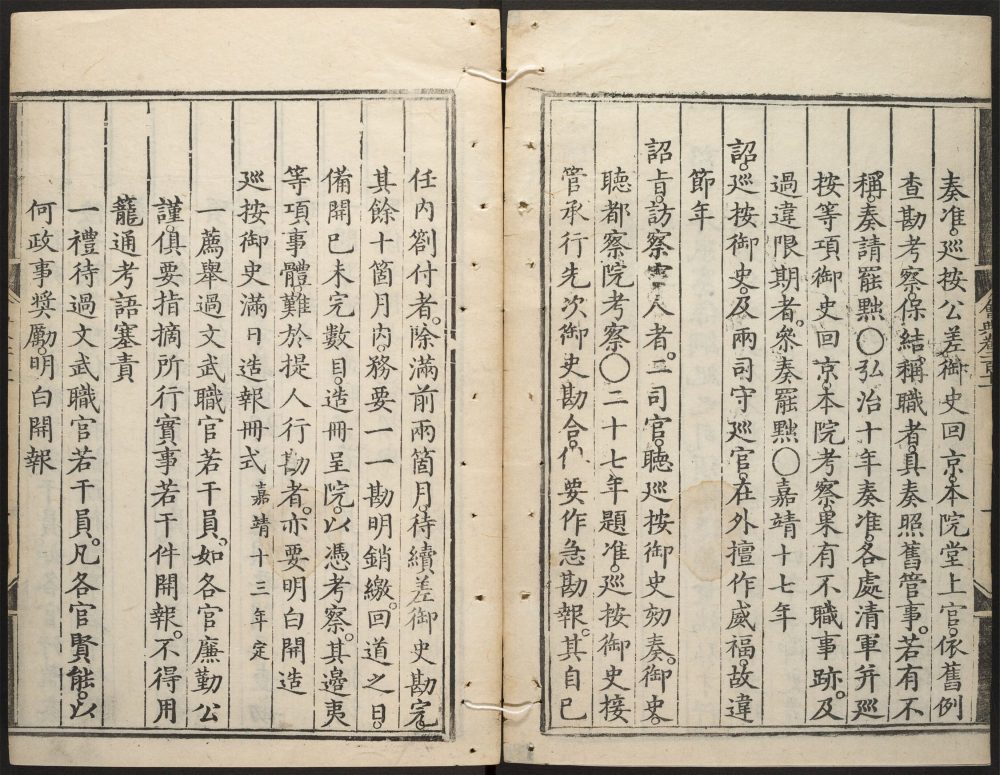 奏准。巡按公差御史回京。本院堂上官。依舊例
查勘考察保結。稱職者。具奏照舊管事。若有不
稱。奏請罷黜〇弘治十年奏准。各處清軍并巡
按等項御史回京。本院考察。果有不職事跡。及
過違限期者。叅奏罷黜〇嘉靖十七年
詔。巡按御史。及兩司守巡官。在外擅作威福。故違
節年
詔旨。訪察害人者。三司官。聽巡按御史劾奏。御史。
聽都察院考察〇二十七年題准。巡按御史接
管承行先次御史勘合。作要作急勘報。其自巳
任内劄付者。除滿前兩箇月。待續差御史勘完。
其餘十箇月内。務要一一勘明銷繳。回道之日。
備開巳未完數目。造冊呈院。以憑考察。其邊夷
等項事體。難於提人行勘者。亦要明白開造
巡按御史滿日造報冊式 嘉靖十三年定
一薦舉過文武職官若干員。如各官廉勤公
謹。俱要指摘所行實事若干件開報。不得用
籠通考語塞責
一禮待過文武職官若干員。凡各官賢能。以
何政事獎勵。明白開報